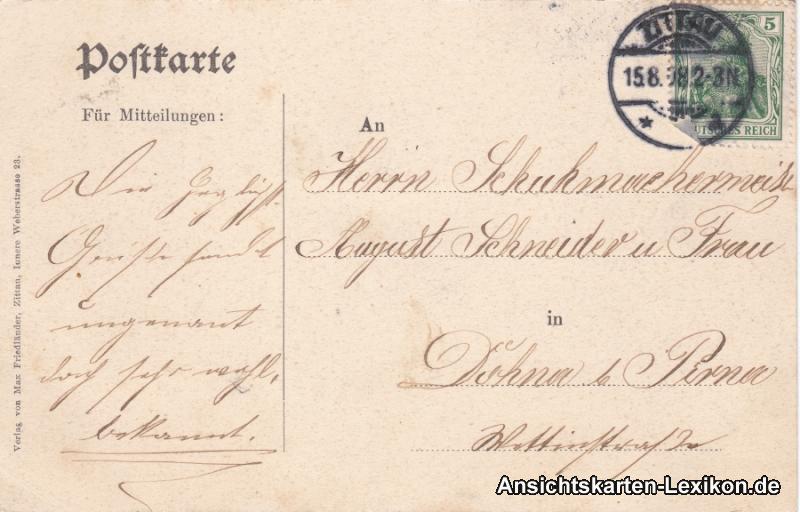 Postkarte
Für Mitteilungen:
Die herzlichst
Grüße sendet
ungenant
doch sehr wohl
bekannt.
An
Herrn Schuhmachermeist.
August Schneider u Frau
in
Dohna b Perna
Wettinstraße
ZITTAU
15.8.08.2-3N.
5
DEUTSCHES REICH
Verlag von Max Friedländer, Zittau, Innere Weberstrasse 23.
Ansichtskarten-Lexikon.de